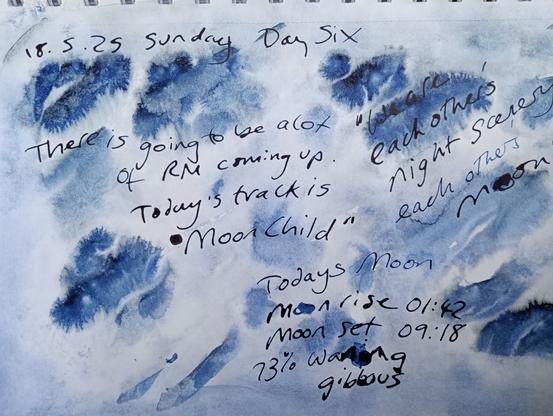 18.5.25 Sunday Day Six
There is going to be alot
of RM coming up.
Today's track is
"Moon Child"
"We are
each others
night scenery
each others
moon"
Todays Moon
Moon rise 01:42
Moon set 09:18
73% Waning
gibbous